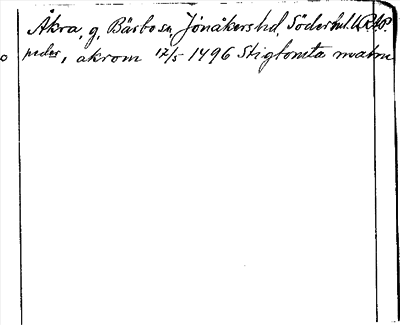 Åkra, g, Bärbo sn, Jönåkers hd, Söderml.
peder, akrom 17/5 1496 Stigtomta